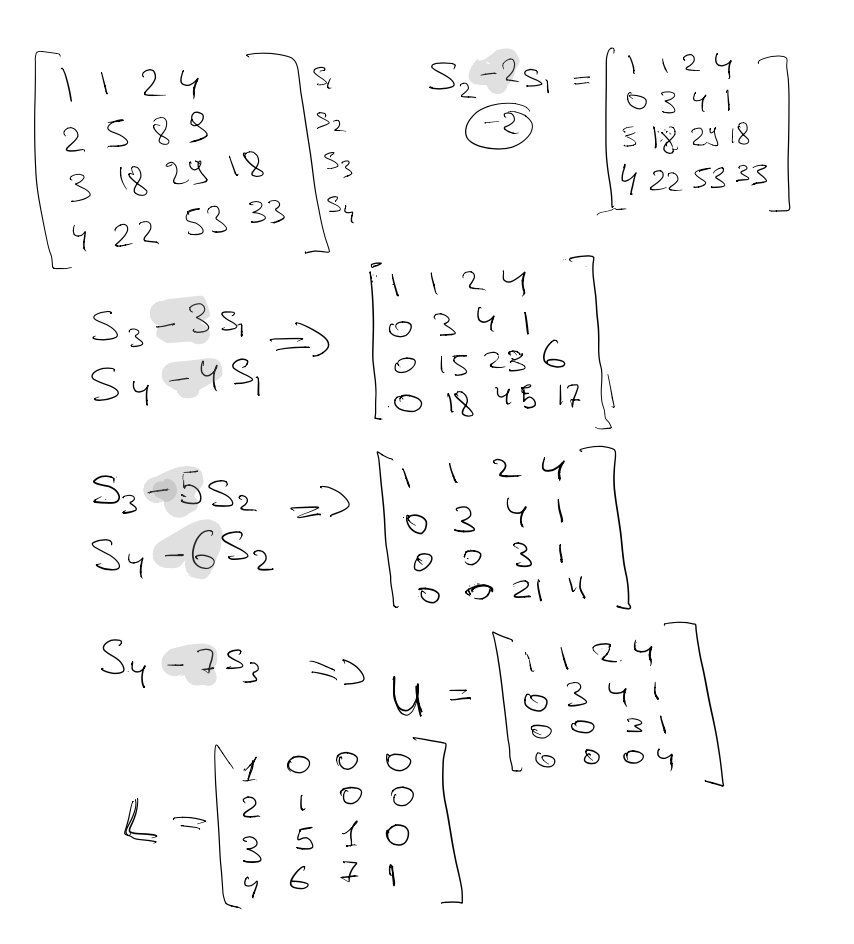 1 1 2 4 S1
2 5 8 9 S2
3 18 29 18 S3
4 22 53 33 S4
S2 -2S1 =
-2
1 1 2 4
0 3 4 1
3 18 29 18
4 22 53 33
S3 -3S1
S4 -4S1
=>
1 1 2 4
0 3 4 1
0 15 23 6
0 18 45 17
S3 -5S2
S4 -6S2
=>
1 1 2 4
0 3 4 1
0 0 3 1
0 0 21 11
S4 -7S3 => U =
1 1 2 4
0 3 4 1
0 0 3 1
0 0 0 4
L =
1 0 0 0
2 1 0 0
3 5 1 0
4 6 7 1